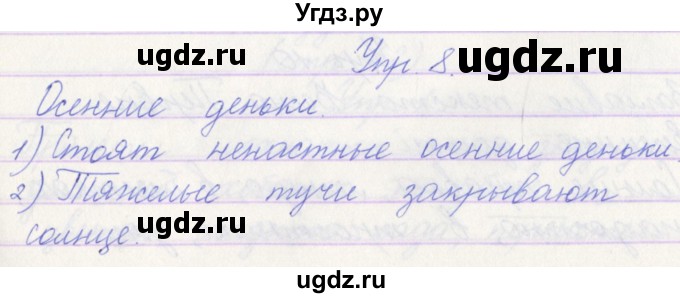 Угдз.ру
ugdz.ru ugdz.ru
Упр. 8.
Осенние деньки.
ugdz.ru
1) Стоят ненастные осенние деньки.
2) Тяжелые тучи закрывают
ugdz.ru ugdz.ru
солнце.
ugdz.ru